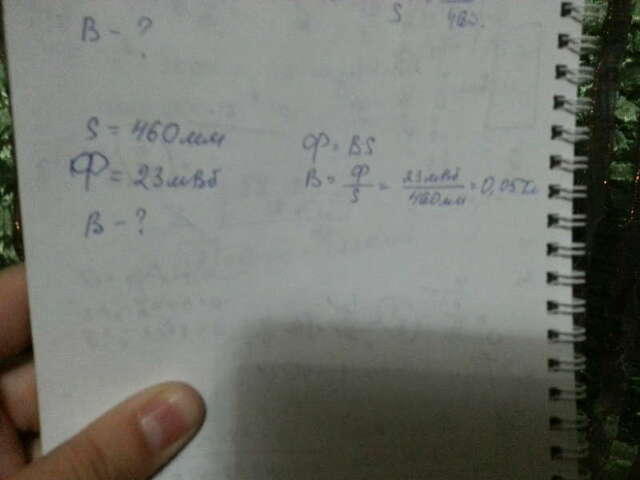 B - ?
S
460.
S = 460мм
Ф = 23мВб
B - ?
Ф = BS
B = Ф/S = 23мВб/460мм = 0,05Тл